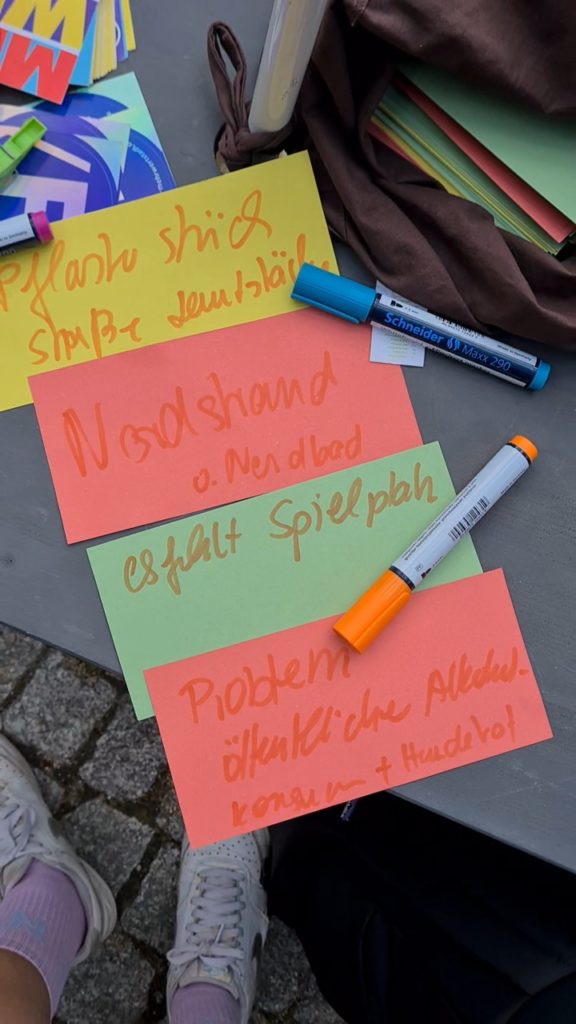 Pflaster strich
straße
Nordstrand
o. Nordbad
es fehlt Spielplatz
Problem
öffentliche Alkohol-
konsum + Hundekot
Schneider Maxx 290